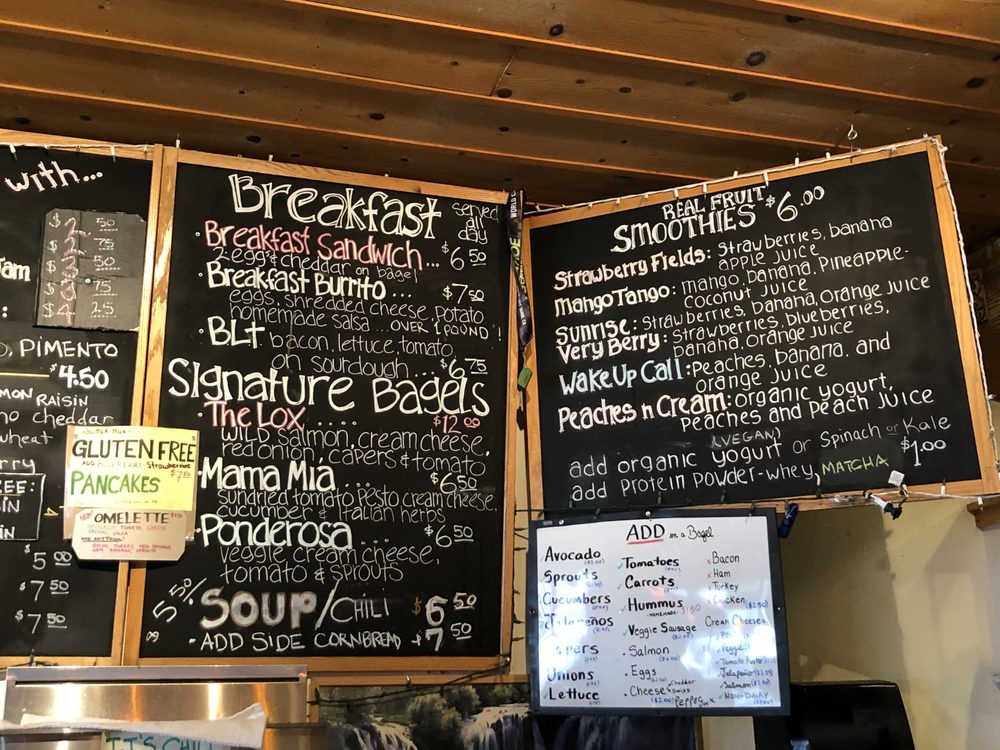 with...
$2 50
$2 75
$3 50
$3 75
$4 25
PIMENTO
$4.50
RAISIN
no cheddar
wheat
BUTTER MILK
GLUTEN FREE
ADD BLUEBERRY Strawberries
$7.50
PANCAKES
NEW OMELETTE
$5 00
$7 50
$7 50
Breakfast served all day
· Breakfast Sandwich... $6 50
2 egg & cheddar on bagel
· Breakfast Burrito ... $7 50
eggs, shredded cheese, potato
homemade salsa ... OVER 1 POUND!
· BLT bacon, lettuce, tomato
on sourdough ... $6 75
Signature Bagels
· The Lox ..... $12 00
WILD salmon, cream cheese,
red onion, capers & tomato
· Mama Mia ... $6 50
sundried tomato pesto cream cheese
cucumber & Italian herbs
· Ponderosa ... $6 50
veggie cream cheese,
tomato & sprouts
SOUP/CHILI $6 50
· ADD SIDE CORNBREAD $7 50
REAL FRUIT
SMOOTHIES $6.00
Strawberry Fields: Strawberries, banana
apple juice
Mango Tango: mango, banana, pineapple-
coconut juice
Sunrise: Strawberries, banana, orange juice
Very Berry: Strawberries, blueberries,
banana, orange juice
Wake Up Call: Peaches, banana, and
orange juice
Peaches n Cream: organic yogurt,
peaches and peach juice
(VEGAN)
add organic yogurt or Spinach or Kale
add protein powder-whey, MATCHA $1.00
ADD on a Bagel
Avocado
Sprouts
Cucumbers
Jalapeños
Capers
Onions
Lettuce
Tomatoes
Carrots
Hummus
HOMEMADE $1.50
Veggie Sausage
Salmon
Eggs
Cheese Cheddar Swiss Pepper Jack
Bacon
Ham
Turkey
Chicken ($2.50)
Cream Cheeses
Veggie
Tomato Pesto
Jalapeño
Salmon
Non-Dairy
IT'S CHILI